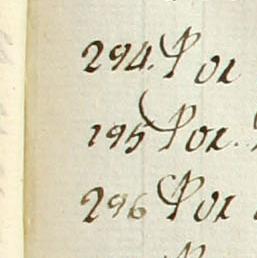 294. Por
195 Por.
296 Por